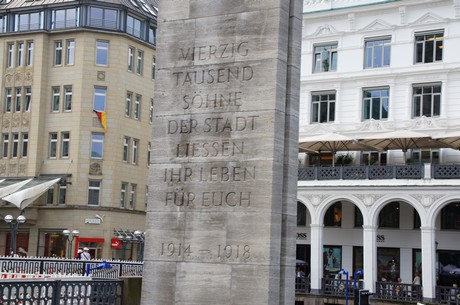 VIERZIG
TAUSEND
SÖHNE
DER STADT
LIESSEN
IHR LEBEN
FÜR EUCH
1914 – 1918